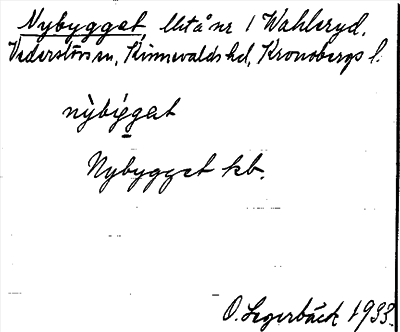 Nybygget, llt å nr 1 Wahleryd,
Vederslöv sn, Kinnevalds hd, Kronobergs l.
nỳbýgget
Nybygget kb.
O. Segerbäck 1933.